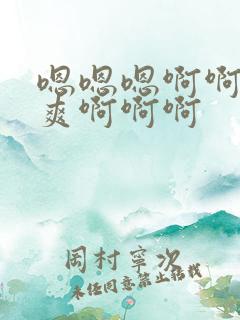 嗯嗯嗯啊啊
爽啊啊啊
岡村寧次
未经同意禁止转载